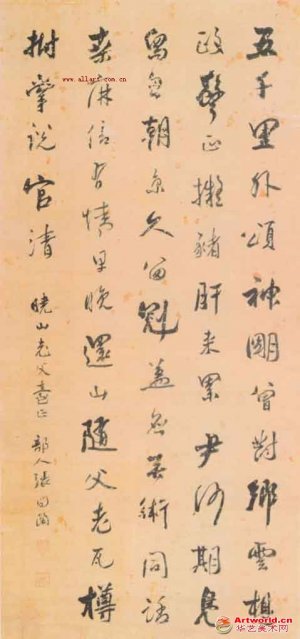 www.allart.com.cn
五千里外頌神明曾對鄉雲想
政聲正擬豬肝來累尹何期鳧
舄朝京久留蓋無術同話
桑麻信有情早晚還山隨父老瓦樽
拊掌說官清
曉山老父臺正 部人張問陶
Artworld.cn
华艺美术网